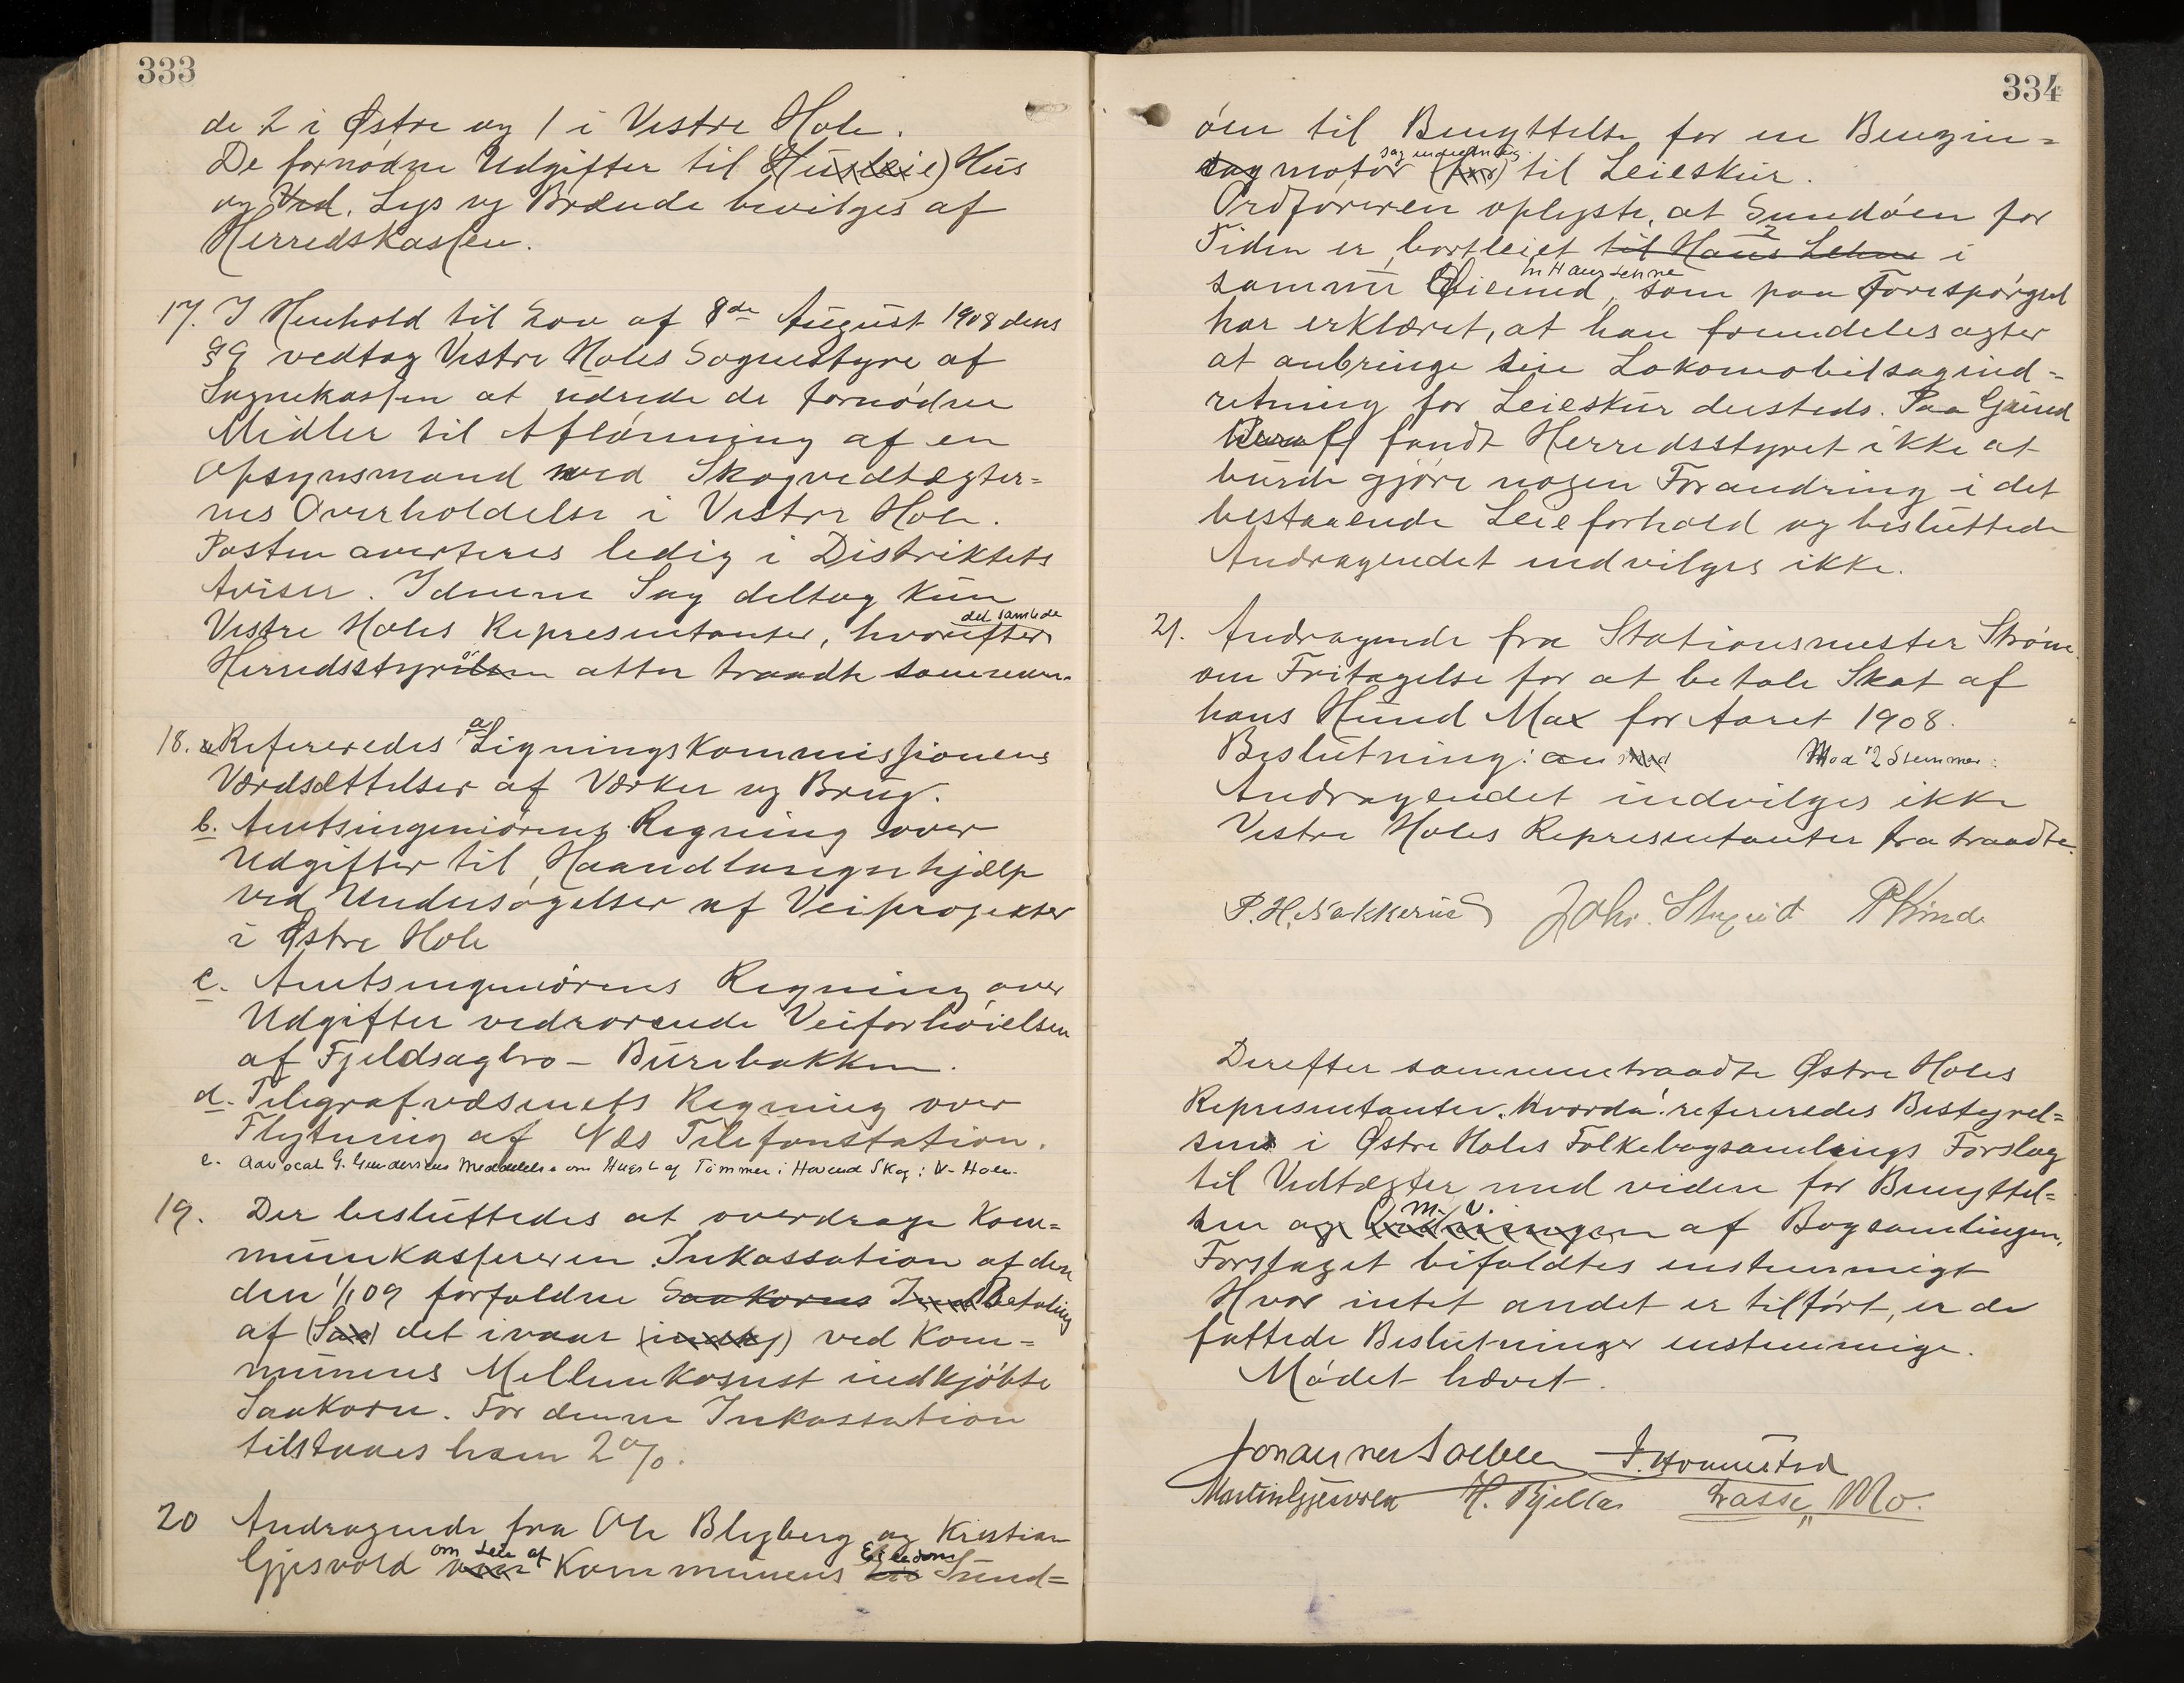 333
de 2 i Østre og 1 i Vestre Hole.
De fornødne Udgifter til (Husleie) Hus
og Ved, Lys og Brænde bevilges af
Herredskassen.
17. I Henhold til Lov af 8de August 1908 dens
§9 vedtog Vestre Holes Sognestyre af
Sognekassen at udrede de fornødne
Midler til Aflønning af en
Opsynsmand ved Skogvedtægter=
nes Overholdelse i Vestre Hole.
Posten averteres ledig i Distriktets
Aviser. I denne Sag deltog kun
Vestre Holes Repræsentanter, hvorefter det samlede
Herredsstyre atter traadte sammen.
18. Refereredes a Ligningskommissionens
Værdsættelser af Værker og Brug.
b. Amtsingeniørens Regning over
Udgifter til Haandlangerhjælp
ved Undersøgelser af Veiprojekter
i Østre Hole
c. Amtsingeniørens Regning over
Udgifter vedrørende Veiforhøielsen
af Fjeldsagbro - Burebakken.
d. Telegrafvæsenets Regning over
Flytning af Næs Telefonstation.
e. Advocat G. Gundersens Meddelelse om Hugst af Tømmer i Hovud Skog i V. Hole.
19. Der besluttedes at overdrage Kom=
munekassereren Inkassation af den
den 1/1 09 forfaldne Saakorns Ind Betaling
af (Saa) det ivaar ved Kom=
munens Mellemkomst indkjøbte
Saakorn. For denne Inkassation
tilstaaes ham 2%.
20 Andragende fra Ole Blyberg og Kristian
Gjesvold om Leie af Kommunens Eiendom Sund=
334
øen til Benyttelse for en Benzin=
sag motor sagindretning (for) til Leieskur.
Ordføreren oplyste, at Sundøen for
Tiden er bortleiet til Hans Lehne i
samme Øiemed, til Hans Lehne som paa Forespørgsel
har erklæret, at han fremdeles agter
at anbringe sin Lokomobilsagind=
retning for Leieskur dersteds. Paa Grund
heraf fandt Herredsstyret ikke at
burde gjøre nogen Forandring i det
bestaaende Leieforhold og besluttede
Andragendet indvilges ikke.
21. Andragende fra Stationsmester Strøm
om Fritagelse for at betale Skat af
hans Hund Max for Aaret 1908.
Beslutning: Mod 2 Stemmer:
Andragendet indvilges ikke
Vestre Holes Repræsentanter fratraadte.
P. H. Nakkerud Johs. Stuveit P Vinde
Derefter sammentraadte Østre Holes
Repræsentanter. Hvorda refereredes Bestyrel=
sens i Østre Holes Folkebogsamlings Forslag
til Vedtægter med videre for Benyttel=
sen m. v. af Bogsamlingen.
Forslaget bifaldtes enstemmigt
Hvor intet andet er tilført, er de
fattede Beslutninger enstemmige.
Mødet hævet.
Johannes Sælle
Martin Gjesvold H. Bjella Lasse Mo.